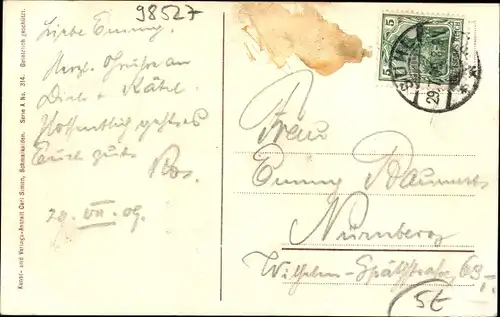 98527
Liebe Emmy.
Herzl. Grüße an
Dich + Kätel.
Hoffentlich geht es
Euch gut.
Ros.
29. VII. 09.
Kunst- und Verlags-Anstalt Carl Simon, Schmalkalden. Serie A No. 314. Gesetzlich geschützt.
5
29.
Frau
Emmy
Nürnberg
Wilhelm-Spätstraße 63
St